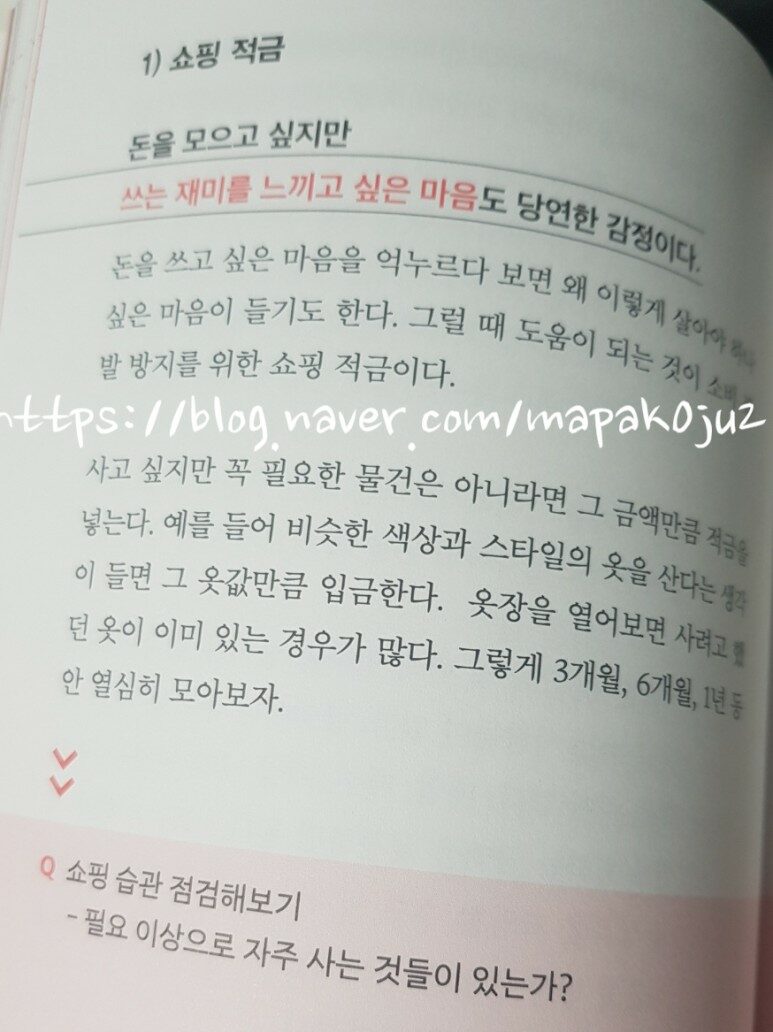 1) 쇼핑 적금
돈을 모으고 싶지만
쓰는 재미를 느끼고 싶은 마음도 당연한 감정이다.
돈을 쓰고 싶은 마음을 억누르다 보면 왜 이렇게 살아야 하나
싶은 마음이 들기도 한다. 그럴 때 도움이 되는 것이 소비
발 방지를 위한 쇼핑 적금이다.
https://blog.naver.com/mapak0juz
사고 싶지만 꼭 필요한 물건은 아니라면 그 금액만큼 적금을
넣는다. 예를 들어 비슷한 색상과 스타일의 옷을 산다는 생각
이 들면 그 옷값만큼 입금한다. 옷장을 열어보면 사려고 했
던 옷이 이미 있는 경우가 많다. 그렇게 3개월, 6개월, 1년 동
안 열심히 모아보자.
Q 쇼핑 습관 점검해보기
- 필요 이상으로 자주 사는 것들이 있는가?